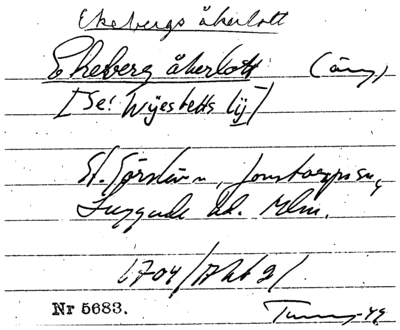 Ekebergs åkerlott
Ekeberg åkerlott (äng)
[Se: Wijestetts lij]
St. Görslöv, Jonstorps sn,
Luggude hd. Mlm.
1704/
Nr 5683.